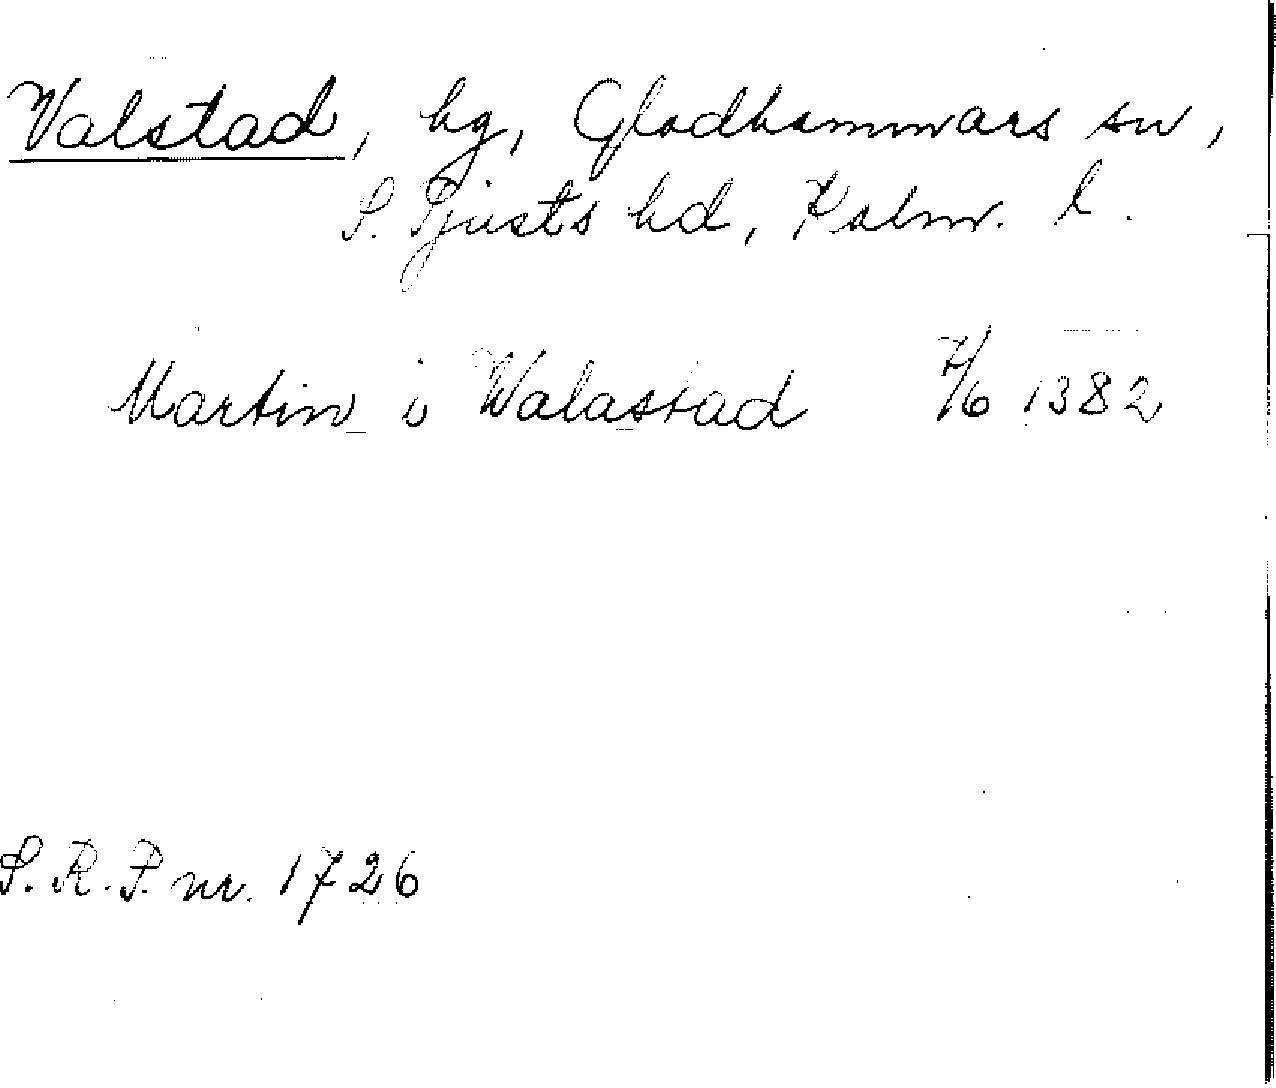 Valstad, hg, Gladhammars sn,
S. Tjusts hd, Kalm. l.
Martin i Walastad 7/6 1382
S.R.P. nr. 1726